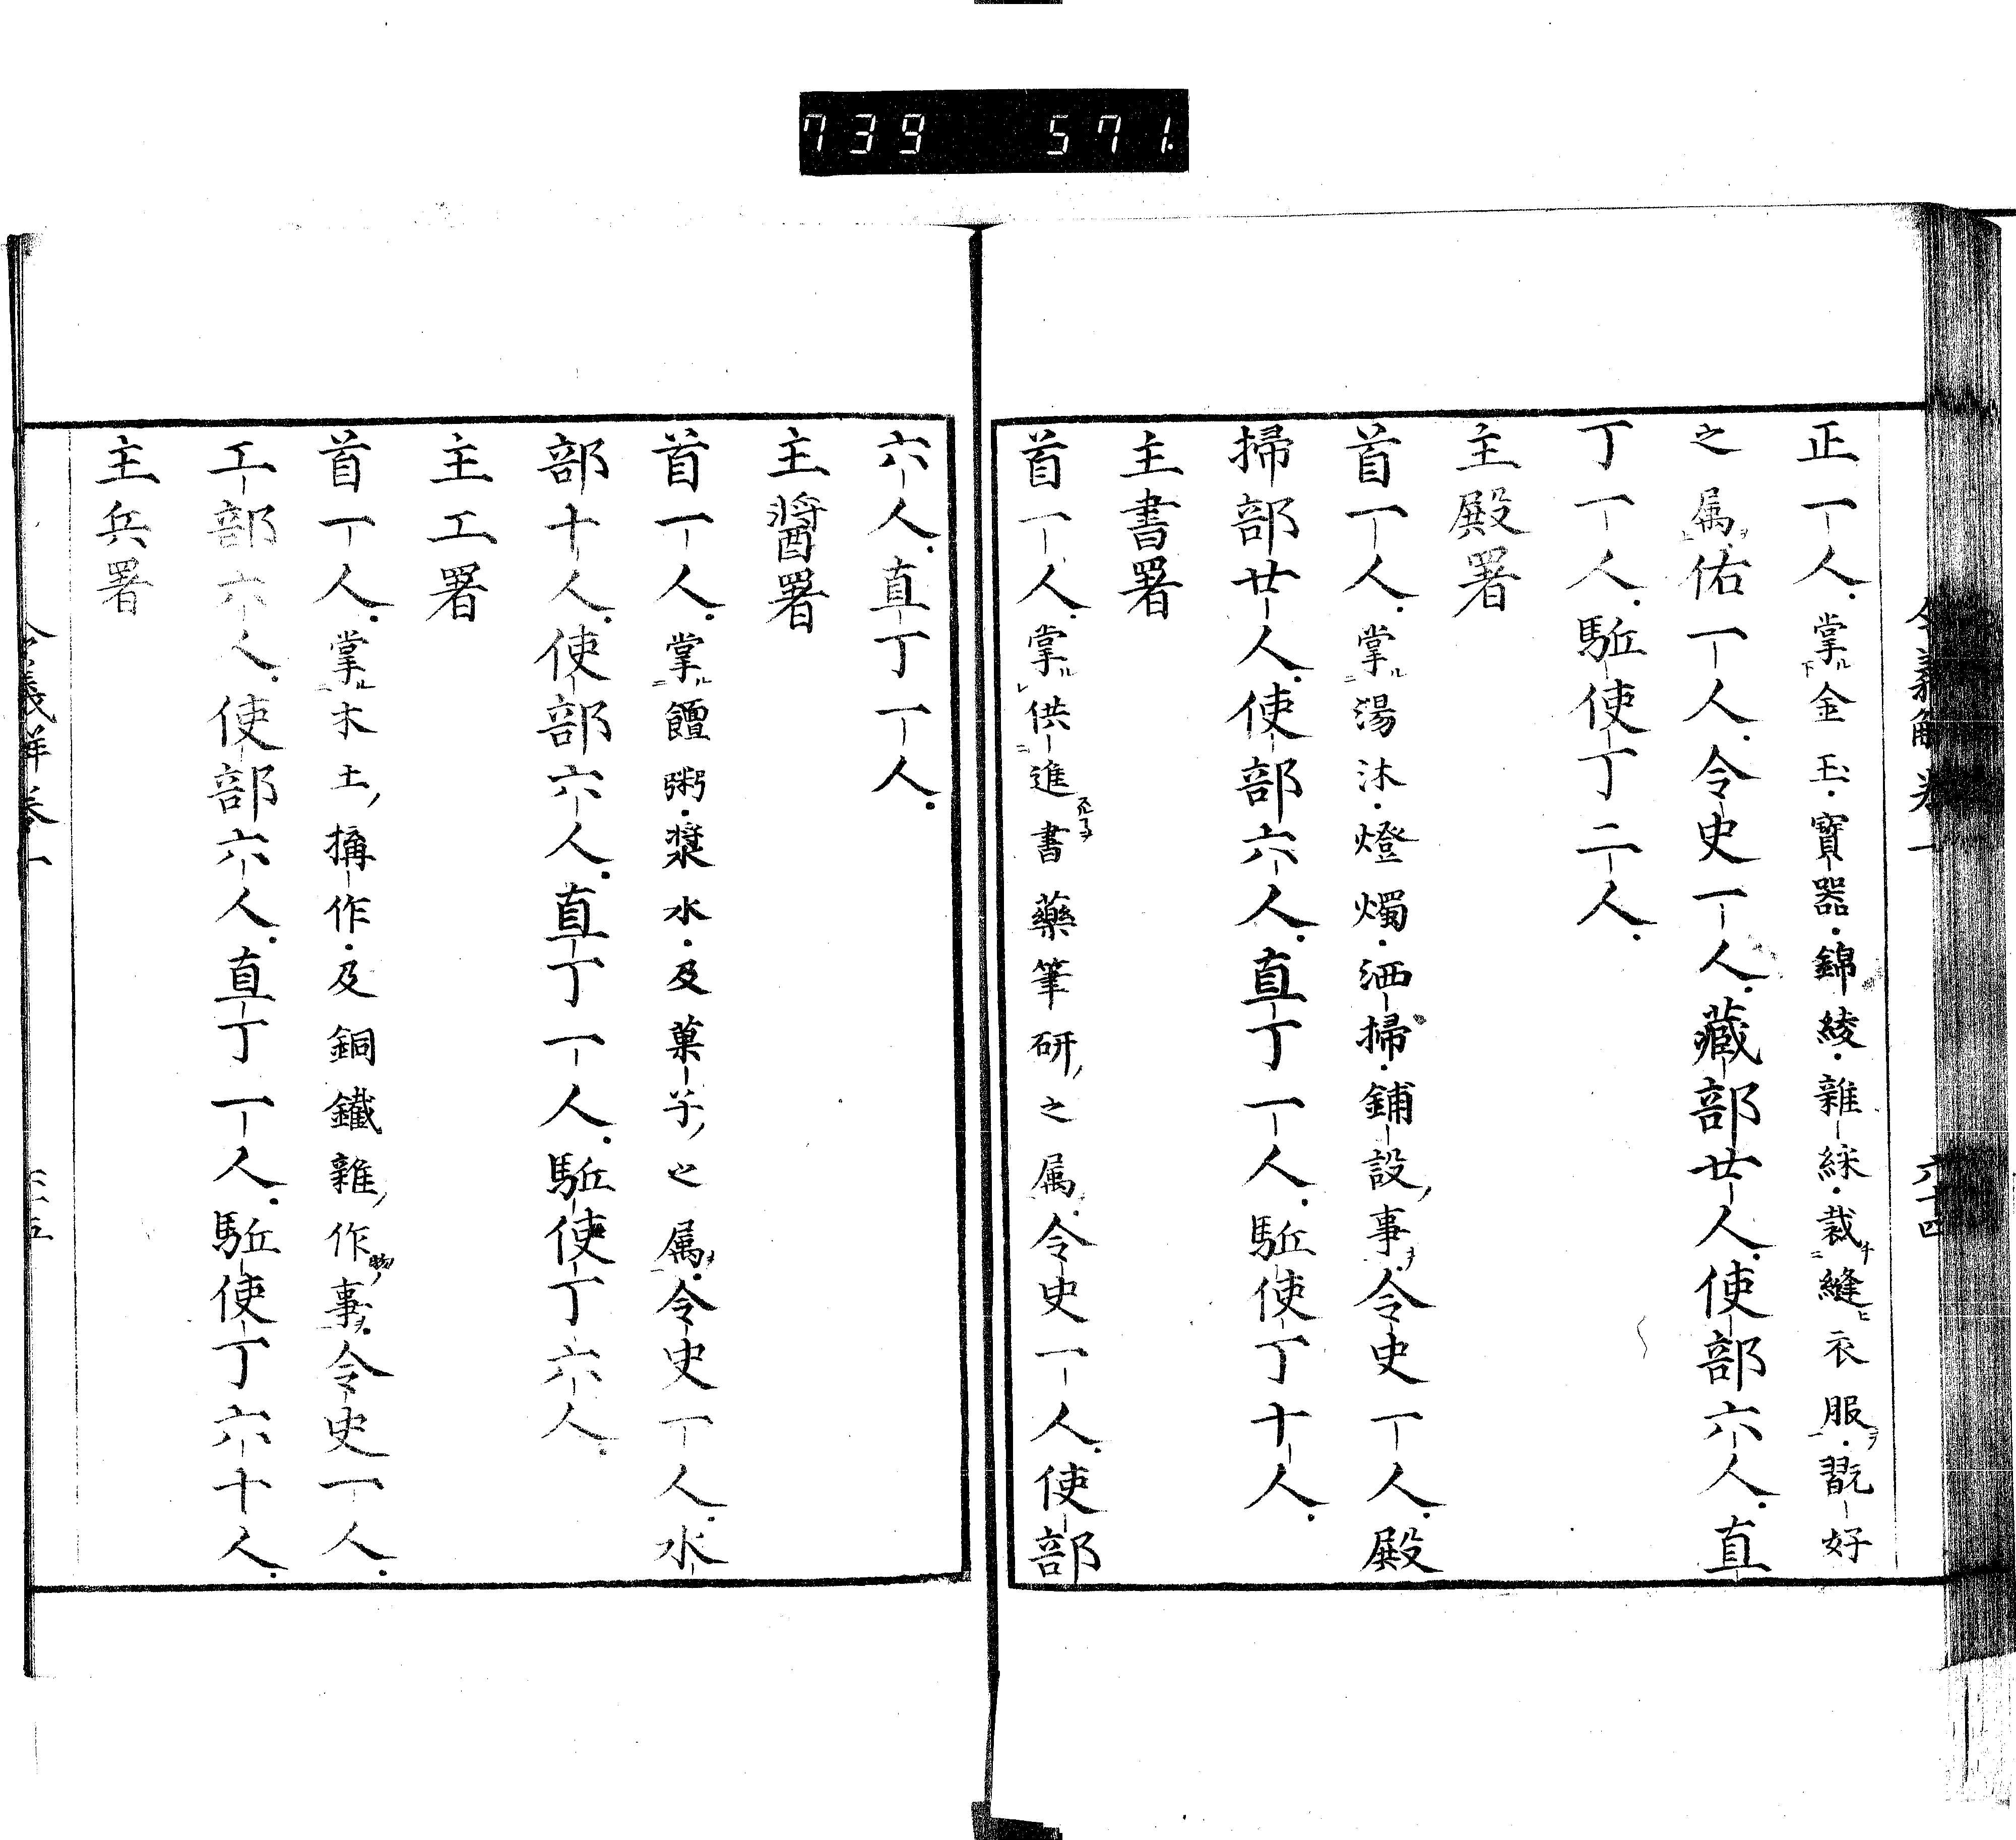 739 571
令義解卷一 六十四
正一人掌金玉寶器錦綾雜綵裁縫衣服翫好
之属佑一人令史一人藏部廿人使部六人直
丁一人駈使丁二人
主殿署
首一人掌湯沐燈燭洒掃鋪設事令史一人殿
掃部廿人使部六人直丁一人駈使丁十人
主書署
首一人掌供進書藥筆研之属令史一人使部
六人直丁一人
主醬署
首一人掌饘粥漿水及菓子之属令史一人水
部十人使部六人直丁一人駈使丁六人
主工署
首一人掌木土搆作及銅鐵雜作事令史一人
工部六人使部六人直丁一人駈使丁六十人
主兵署